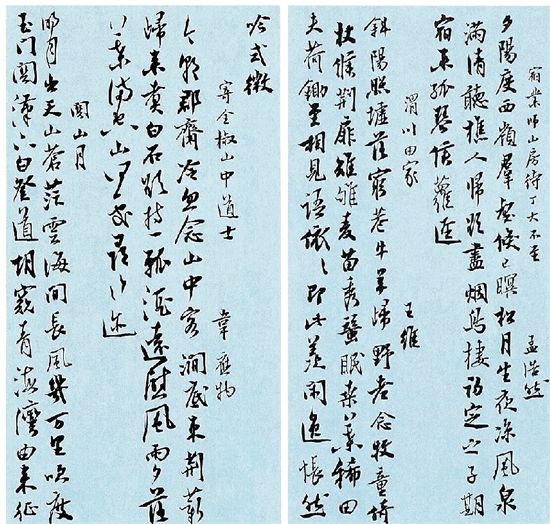 宿業師山房待丁大不至 孟浩然
夕陽度西嶺羣壑倏已暝松月生夜涼風泉
滿清聽樵人歸欲盡烟鳥棲初定之子期
宿來孤琴候蘿逕
渭川田家 王維
斜陽照墟落窮巷牛羊歸野老念牧童倚
杖候荊扉雉雊麥苗秀蠶眠桑葉稀田
夫荷鋤至相見語依依即此羨閑逸悵然
吟式微
寄全椒山中道士 韋應物
今朝郡齋冷忽念山中客澗底束荊薪
歸來煮白石欲持一瓢酒遠慰風雨夕落
葉滿空山何處尋行迹
關山月
明月出天山蒼茫雲海間長風幾萬里吹度
玉門關漢下白登道胡窺青海灣由來征